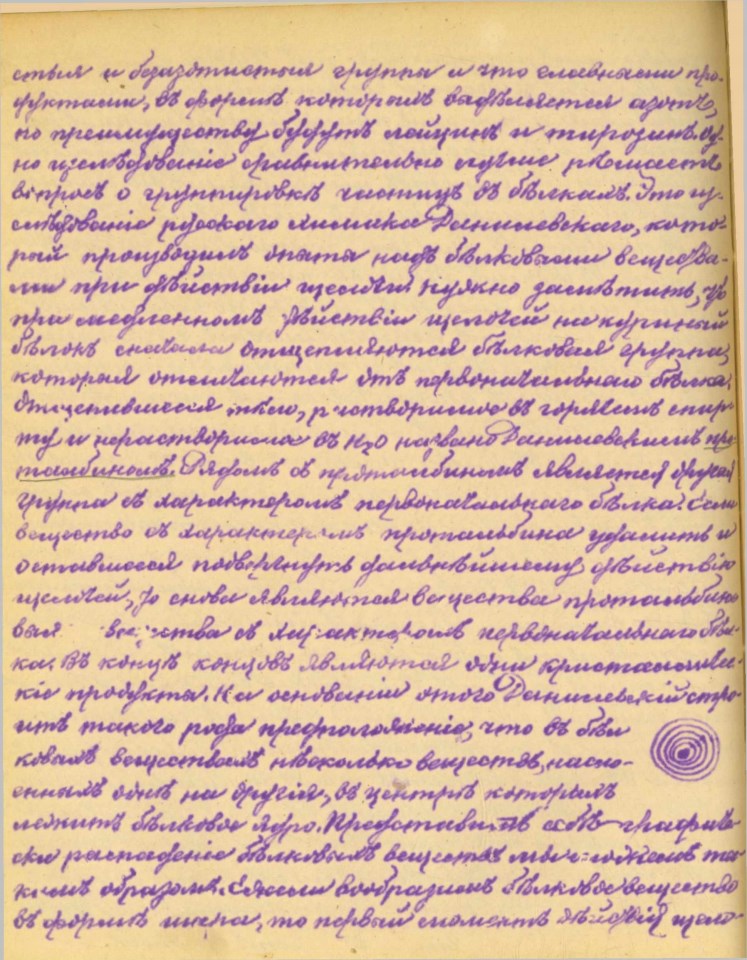 стыя и безазотистыя группы и что главными про-
дуктами, въ формѣ которыхъ выдѣляется азотъ,
по преимуществу будутъ лейцинъ и тирозинъ. Од-
но изслѣдованіе сравнительно лучше рѣшаетъ
вопросъ о группировкѣ частицъ въ бѣлкахъ. Это из-
слѣдованіе русскаго химика Данилевскаго, кото-
рый производилъ опыты надъ бѣлковыми вещества-
ми при дѣйствіи щелочей. Нужно замѣтить, что
при медленномъ дѣйствіи щелочей на куриный
бѣлокъ сначала отщепляются бѣлковыя группы,
которыя отличаются отъ первоначальнаго бѣлка.
Отщепившееся тѣло, растворимое въ горячемъ спир-
ту и нерастворимое въ H2O названо Данилевскимъ про-
тальбиномъ. Рядомъ съ протальбиномъ является другая
группа съ характеромъ первоначальнаго бѣлка. Если
вещество съ характеромъ протальбина удалить и
оставшееся подвергнуть дальнѣйшему дѣйствію
щелочей, то снова являются вещества протальбино-
выя вещества съ характеромъ первоначальнаго бѣл-
ка. Въ концѣ концовъ являются одни кристалличес-
кіе продукты. На основаніи этого Данилевскій стро-
итъ такого рода предположеніе, что въ бѣл
ковыхъ веществахъ нѣсколько веществъ, насло-
енныхъ однѣ на другія, въ центрѣ которыхъ
лежитъ бѣлковое ядро. Представить себѣ графиче-
ски распаденіе бѣлковыхъ веществъ мы можемъ та-
кимъ образомъ. Ежели вообразимъ бѣлковое вещество
въ формѣ шара, то первый моментъ дѣйствія щело-